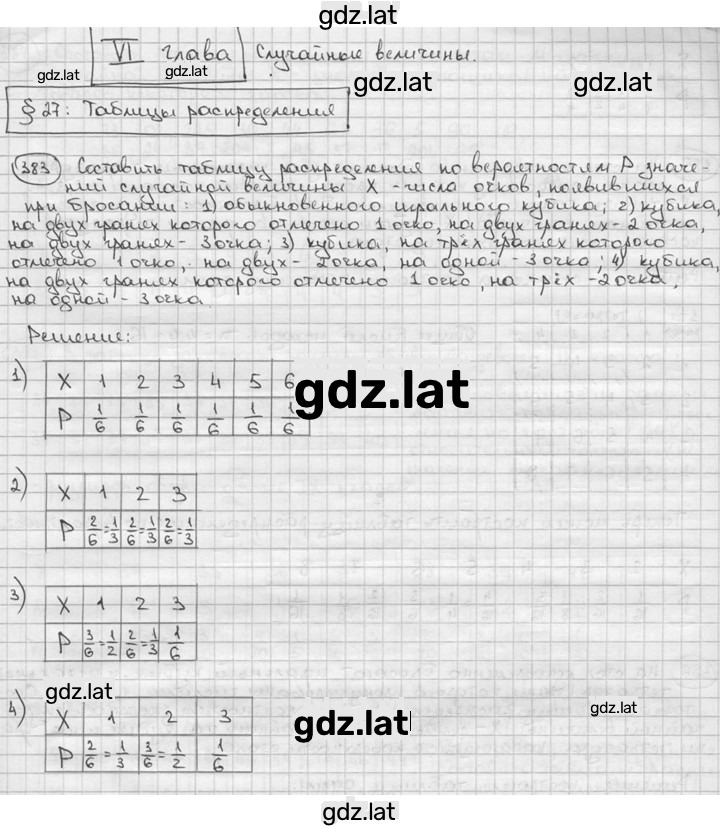 gdz.lat
VI глава Случайные величины.
gdz.lat gdz.lat gdz.lat gdz.lat
§ 27: Таблицы распределения
383 Составить таблицу распределения по вероятностям P значе-
ний случайной величины X - числа очков, появившихся
при бросании: 1) обыкновенного игрального кубика; 2) кубика,
на двух гранях которого отмечено 1 очко, на двух гранях - 2 очка,
на двух гранях - 3 очка; 3) кубика, на трёх гранях которого
отмечено 1 очко, на двух - 2 очка, на одной - 3 очка; 4) кубика,
на двух гранях которого отмечено 1 очко, на трёх - 2 очка,
на одной - 3 очка.
Решение:
1) X 1 2 3 4 5 6
gdz.lat
P 1/6 1/6 1/6 1/6 1/6 1/6
2) X 1 2 3
P 2/6=1/3 2/6=1/3 2/6=1/3
3) X 1 2 3
P 3/6=1/2 2/6=1/3 1/6
gdz.lat
4) X 1 2 3
gdz.lat gdz.lat
P 2/6=1/3 3/6=1/2 1/6
gdz.lat